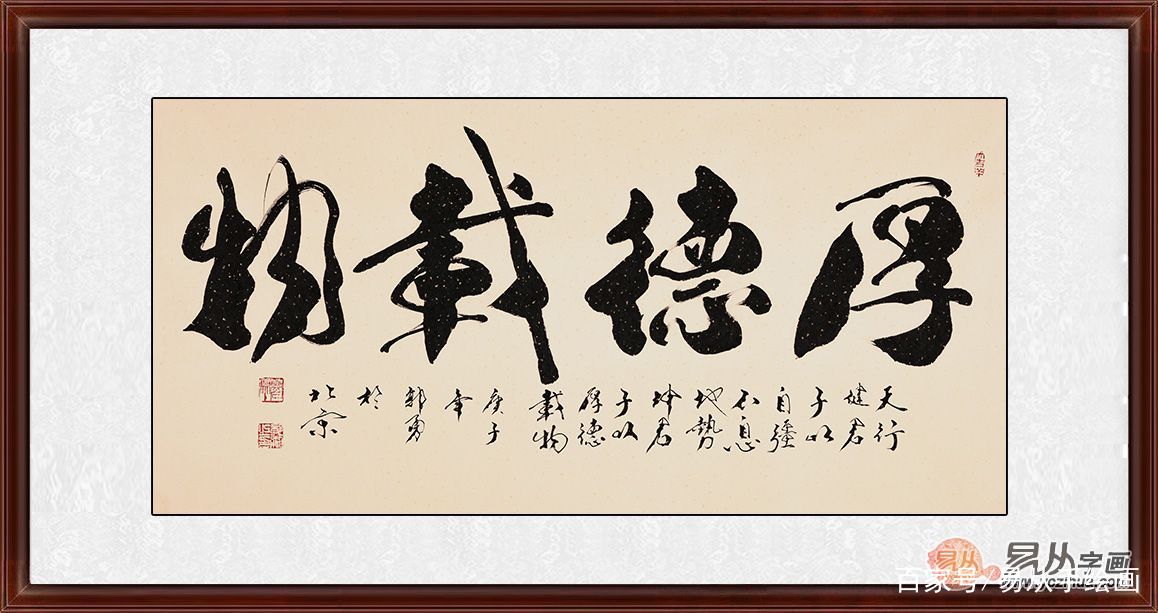 厚德載物
天行
健君
子以
自彊
不息
地勢
坤君
子以
厚德
載物
庚子
年
郭勇
於
北京
易从
易从字画
www.yczihua.com
百家号/易从手绘画